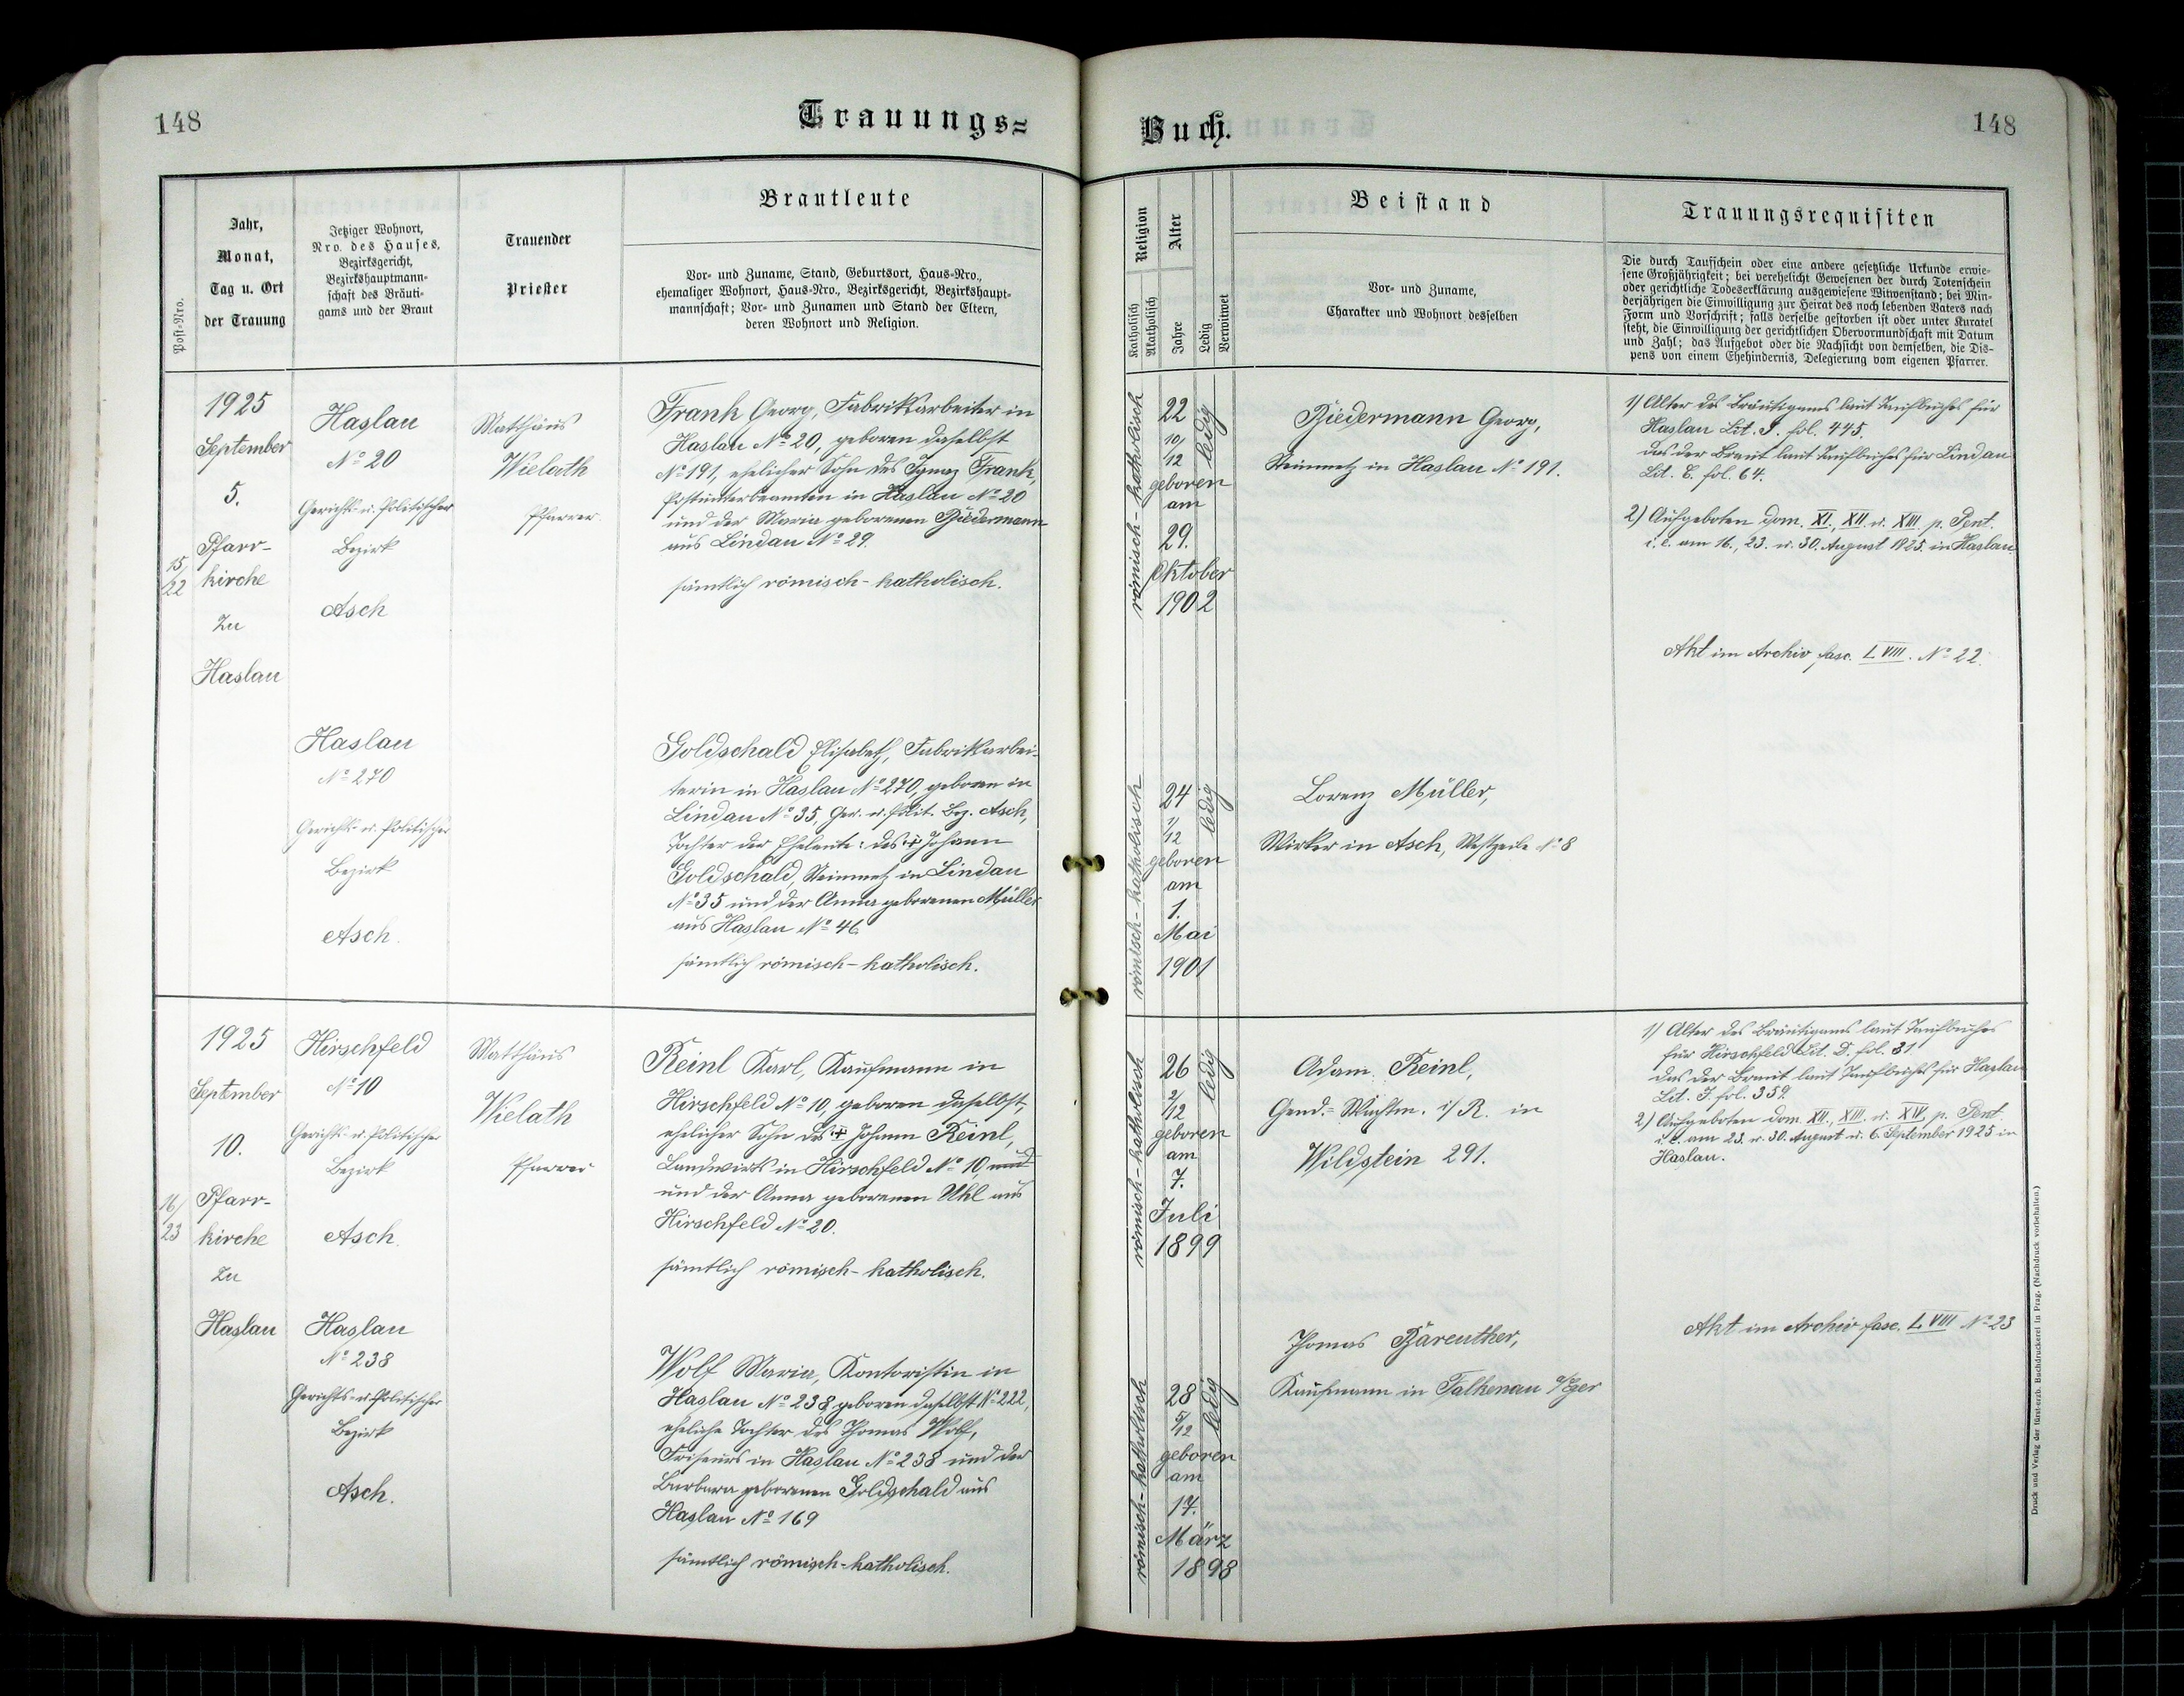 148
Trauungs=
Jahr,
Monat,
Tag u. Ort
der Trauung
Post-Nro.
Jetziger Wohnort,
Nro. des Hauses,
Bezirksgericht,
Bezirkshauptmann-
schaft des Bräuti-
gams und der Braut
Trauender
Priester
Brautleute
Vor- und Zuname, Stand, Geburtsort, Haus-Nro.,
ehemaliger Wohnort, Haus-Nro., Bezirksgericht, Bezirkshaupt-
mannschaft; Vor- und Zunamen und Stand der Eltern,
deren Wohnort und Religion.
15/
22
1925
September
5.
Pfarr-
kirche
zu
Haslau
Haslau
No 20
Gerichts- u. Politischer
Bezirk
Asch
Matthäus
Wielath
Pfarrer
Frank Georg, Fabriksarbeiter in
Haslau No 20, geboren daselbst
No 191, ehelicher Sohn des Ignaz Frank,
Postunterbeamten in Haslau No 20
und der Maria geborenen Biedermann
aus Lindau No 29.
sämtlich römisch-katholisch.
Haslau
No 270
Gerichts- u. Politischer
Bezirk
Asch.
Goldschald Elisabeth, Fabriksarbei-
terin in Haslau No 270, geboren in
Lindau No 35, Ger. u. Polit. Bez. Asch,
Tochter der Eheleute: des † Johann
Goldschald, Steinmetz in Lindau
No 35 und der Anna geborenen Müller
aus Haslau No 46
sämtlich römisch-katholisch.
16/
23
1925
September
10.
Pfarr-
kirche
zu
Haslau
Hirschfeld
No 10
Gerichts- u. Politischer
Bezirk
Asch.
Matthäus
Wielath
Pfarrer
Reinl Karl, Kaufmann in
Hirschfeld No 10, geboren daselbst,
ehelicher Sohn des † Johann Reinl,
Landwirts in Hirschfeld No 10, und
und der Anna geborenen Uhl aus
Hirschfeld No 20.
sämtlich römisch-katholisch.
Haslau
No 238
Gerichts- u. Politischer
Bezirk
Asch.
Wolf Maria, Kontoristin in
Haslau No 238, geboren daselbst No 222,
eheliche Tochter des Thomas Wolf,
Friseurs in Haslau No 238 und der
Barbara geborenen Goldschald aus
Haslau No 169
sämtlich römisch-katholisch.
Buch.
148
Religion
Katholisch
Akatholisch
Alter
Jahre
Ledig
Verwitwet
Beistand
Vor- und Zuname,
Charakter und Wohnort desselben
Trauungsrequisiten
Die durch Taufschein oder eine andere gesetzliche Urkunde erwie-
sene Großjährigkeit; bei verehelicht Gewesenen der durch Totenschein
oder gerichtliche Todeserklärung ausgewiesene Witwenstand; bei Min-
derjährigen die Einwilligung zur Heirat des noch lebenden Vaters nach
Form und Vorschrift; falls derselbe gestorben ist oder unter Kuratel
steht, die Einwilligung der gerichtlichen Obervormundschaft mit Datum
und Zahl; das Aufgebot oder die Nachsicht von demselben, die Dis-
pens von einem Ehehindernis, Delegierung vom eigenen Pfarrer.
römisch-katholisch
22
10/
12
geboren
am
29.
Oktober
1902
ledig
Biedermann Georg,
Steinmetz in Haslau No 191.
1) Alter des Bräutigams laut Taufbuches für
Haslau Lit. I. fol. 445.
das der Braut laut Taufbuches für Lindau
Lit. E. fol. 64.
2) Aufgeboten dom. XI., XII. u. XIII. p. Pent.
i. e. am 16., 23. u. 30. August 1925. in Haslau
Akt im Archiv fasc. LVIII. No 22.
römisch-katholisch
24
1/
12
geboren
am
1.
Mai
1901
ledig
Lorenz Müller,
Wirker in Asch, Westzeile No 8
römisch-katholisch
26
2/
12
geboren
am
7.
Juli
1899
ledig
Adam Reinl,
Gend.-Wachtm. i/R. in
Wildstein 291.
1) Alter des Bräutigams laut Taufbuches
für Hirschfeld Lit. D. fol. 31
das der Braut laut Taufbuches für Haslau
Lit. I. fol. 359
2) Aufgeboten dom. XII., XIII. u. XIV. p. Pent.
i. e. am 23. u. 30. August u. 6. September 1925 in
Haslau.
Akt im Archiv fasc. LVIII No 23
römisch-katholisch
28
5/
12
geboren
am
17.
März
1898
ledig
Thomas Bareuther,
Kaufmann in Falkenau a/Eger
Druck und Verlag der fürst-erzb. Buchdruckerei in Prag. (Nachdruck vorbehalten.)